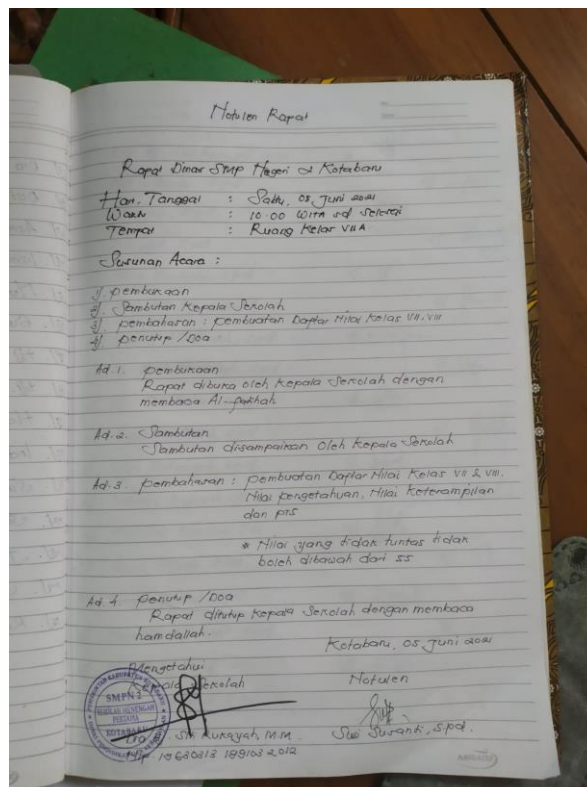 Notulen Rapat
Rapat Dinas SMP Negeri 2 Kotabaru
Hari, Tanggal : Sabtu, 05 Juni 2021
Waktu : 10.00 WITA sd selesai
Tempat : Ruang Kelas VII A
Susunan Acara :
1) pembukaan
2) Sambutan Kepala Sekolah
3) pembahasan : pembuatan Daftar Nilai Kelas VII, VIII
4) penutup / Doa
Ad. 1. pembukaan
Rapat dibuka oleh Kepala Sekolah dengan
membaca Al-fatihah
Ad. 2. Sambutan
Sambutan disampaikan oleh Kepala Sekolah
Ad. 3. pembahasan : pembuatan Daftar Nilai Kelas VII & VIII.
Nilai pengetahuan, Nilai Keterampilan
dan pts
* Nilai yang tidak tuntas tidak
boleh dibawah dari 55
Ad. 4. penutup / Doa
Rapat ditutup Kepala Sekolah dengan membaca
hamdallah.
Kotabaru, 05 Juni 2021
Mengetahui
Kepala Sekolah
Notulen
SMPN 2
SEKOLAH MENENGAH
PERTAMA
KOTABARU
Siti Rukayah, M.M.
Susi Susanti, S.pd.
Nip. 19630313 199103 2012